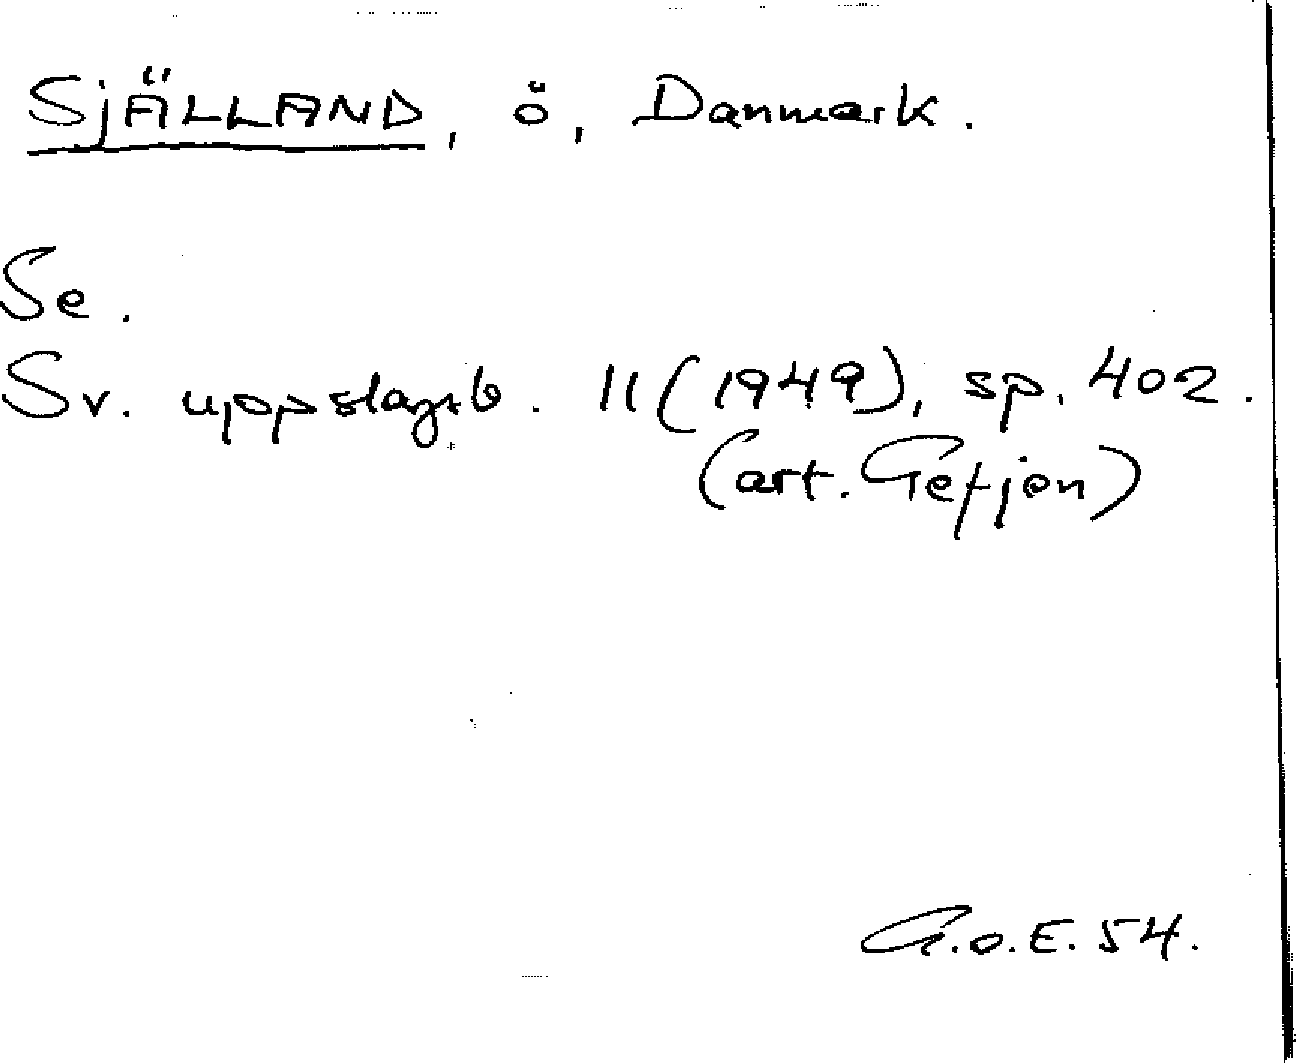 SJÄLLAND, ö, Danmark.
Se.
Sv. uppslagsb. 11(1949), sp. 402.
(art. Gefjon)
G.o.E. 54.